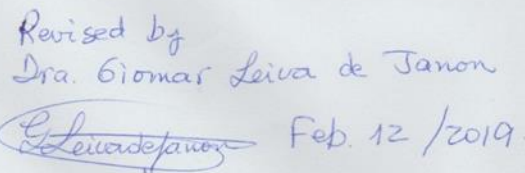 Revised by
Dra. Giomar Leiva de Janon
GLeivadejanon Feb. 12/2019